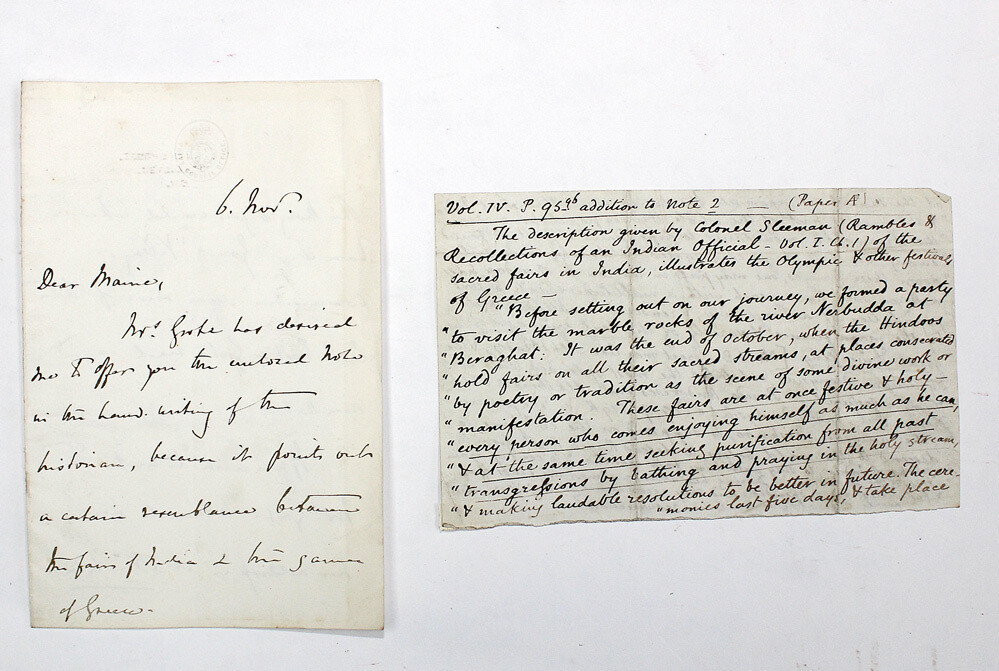 6. Novr.
Dear Maine,
Mrs Grote has desired
me to offer you the enclosed note
in the hand-writing of the
historian, because it points out
a certain resemblance between
the fairs of India & the games
of Greece.
Vol. IV. P. 95 addition to Note 2 — (Paper A)
The description given by Colonel Sleeman (Rambles &
Recollections of an Indian Official - Vol. I. Ch. 1) of the
sacred fairs in India, illustrates the Olympic & other festivals
of Greece —
"Before setting out on our journey, we formed a party
"to visit the marble rocks of the river Nerbudda at
"Beraghat: It was the end of October, when the Hindoos
"hold fairs on all their sacred streams, at places consecrated
"by poetry or tradition as the scene of some divine work or
"manifestation. These fairs are at once festive & holy —
"every person who comes enjoying himself as much as he can,
"& at the same time seeking purification from all past
"transgressions by bathing and praying in the holy stream,
"& making laudable resolutions to be better in future. The cere-
"monies last five days, & take place